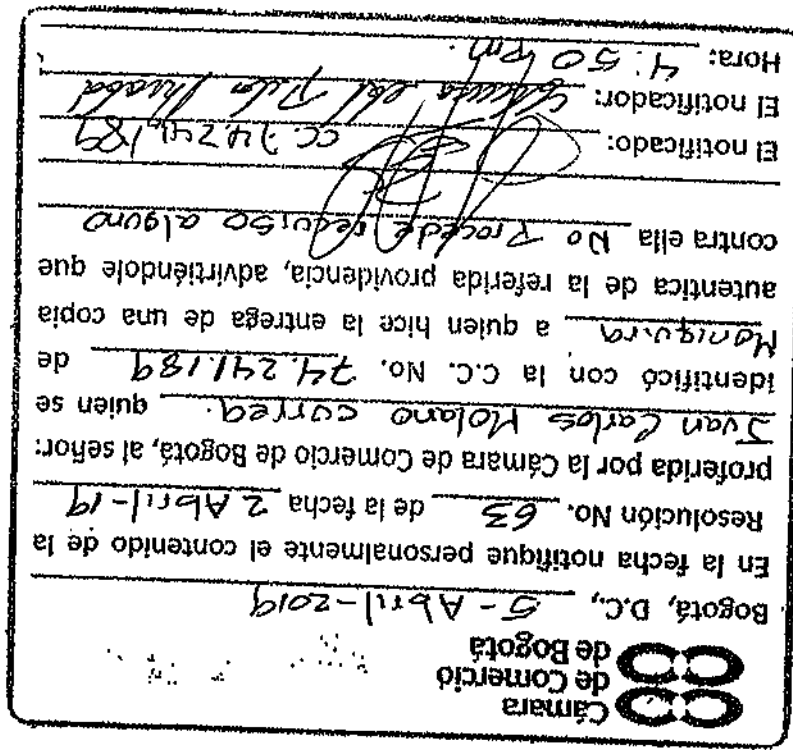 Cámara
de Comercio
de Bogotá
Bogotá, D.C., 5-Abril-2019
En la fecha notifique personalmente el contenido de la
Resolución No. 63 de la fecha 2 Abril-19
proferida por la Cámara de Comercio de Bogotá, al señor:
Juan Carlos Molano correa. quien se
identificó con la C.C. No. 74.241.189 de
Moniquira a quien hice la entrega de una copia
autentica de la referida providencia, advirtiéndole que
contra ella No Procede recurso alguno
El notificado: CC. 74.241.189
El notificador: del Pilar
Hora: 4:50 Pm.